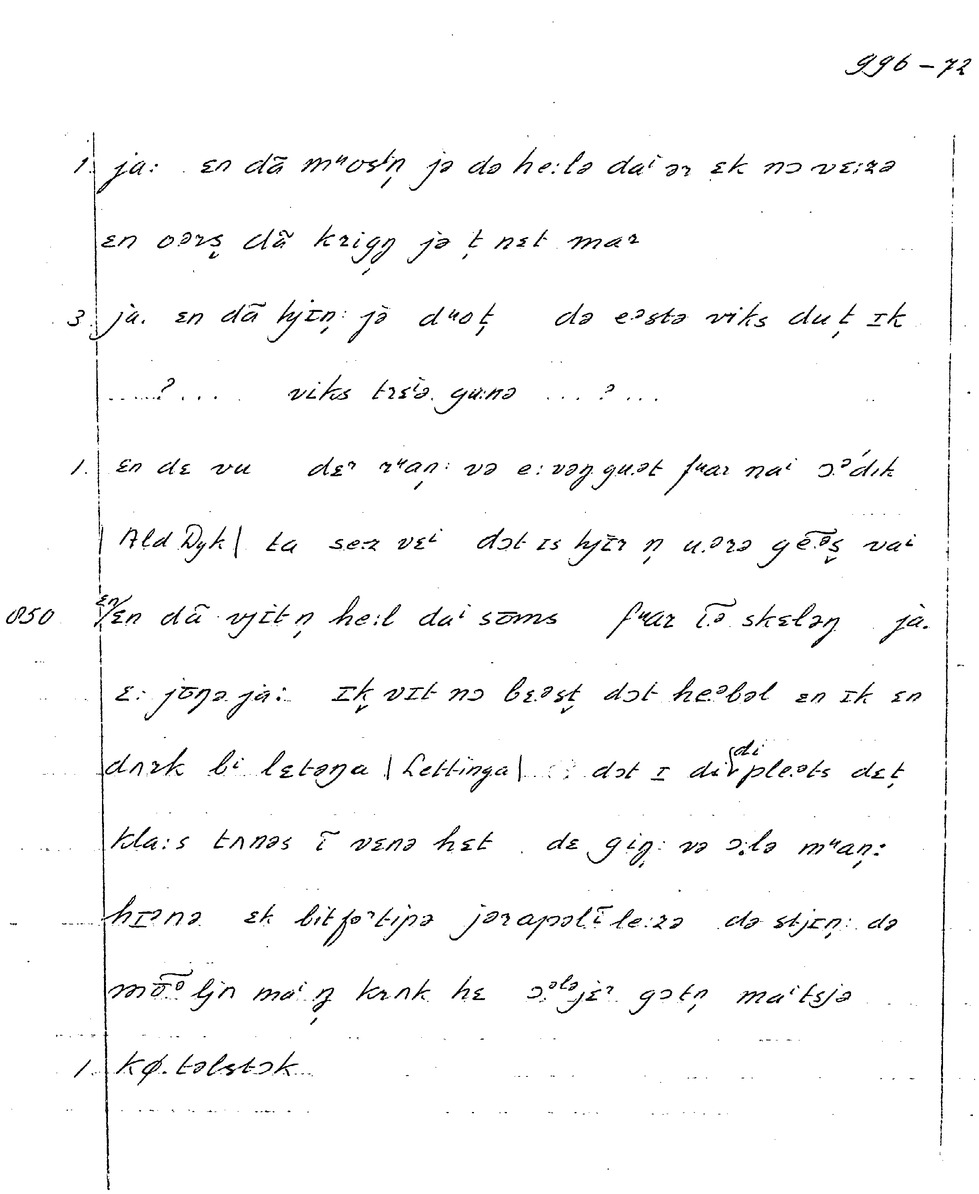 996-72
1. ja: ɛn dã mᵘosⁱn̩ jə də he:lə daⁱ ər ɛk nɔ vɛ:zə
ɛn oərs̬ dã krigŋ̩ jə t̩ nɛt mar
3. ja. ɛn dã hjɪn̩: jə dᵘot̩ də eəstə viks dut̩ ɪk
.....?.... viks trɛⁱə. gu:nə ...?...
1. ɛn dɛ vu dɛr rᵘan̩: və e:vəŋ guət fᵘar naⁱ ɔᵊdɪk
| Ald Dyk | ta se:z vɛⁱ dɔt ɪs hjɪr n̩ u.ərə gẽᵊs̬ vaⁱ
850 ɛn dã vjɪtn̩ he:l daⁱ sõms fᵘar ĩə skɛləŋ ja.
ɛ: jõŋə ja: ɪk̬ vɪt nɔ bɛəst̬ dɔt heᵊbəl ɛn ɪk ɛn
dʌrk bi lɛtəŋa | Lettinga | dɔt ɪ di di pleəts dɛt̩
kla:s tʌnəs ĩ vɛnə hɛt . dɛ giŋ̩: və ɔ:lə mᵘan̩:
hɪənə ɛk bitfəʳtijnə jərapəlĩle:zə də stjɪn̩: də
mõᵊljn maⁱ ŋ̩ krʌk hɛ ɔᵊləjɛʳ gɔtn̩ maⁱtɛjə
1. kø.təlstɔk